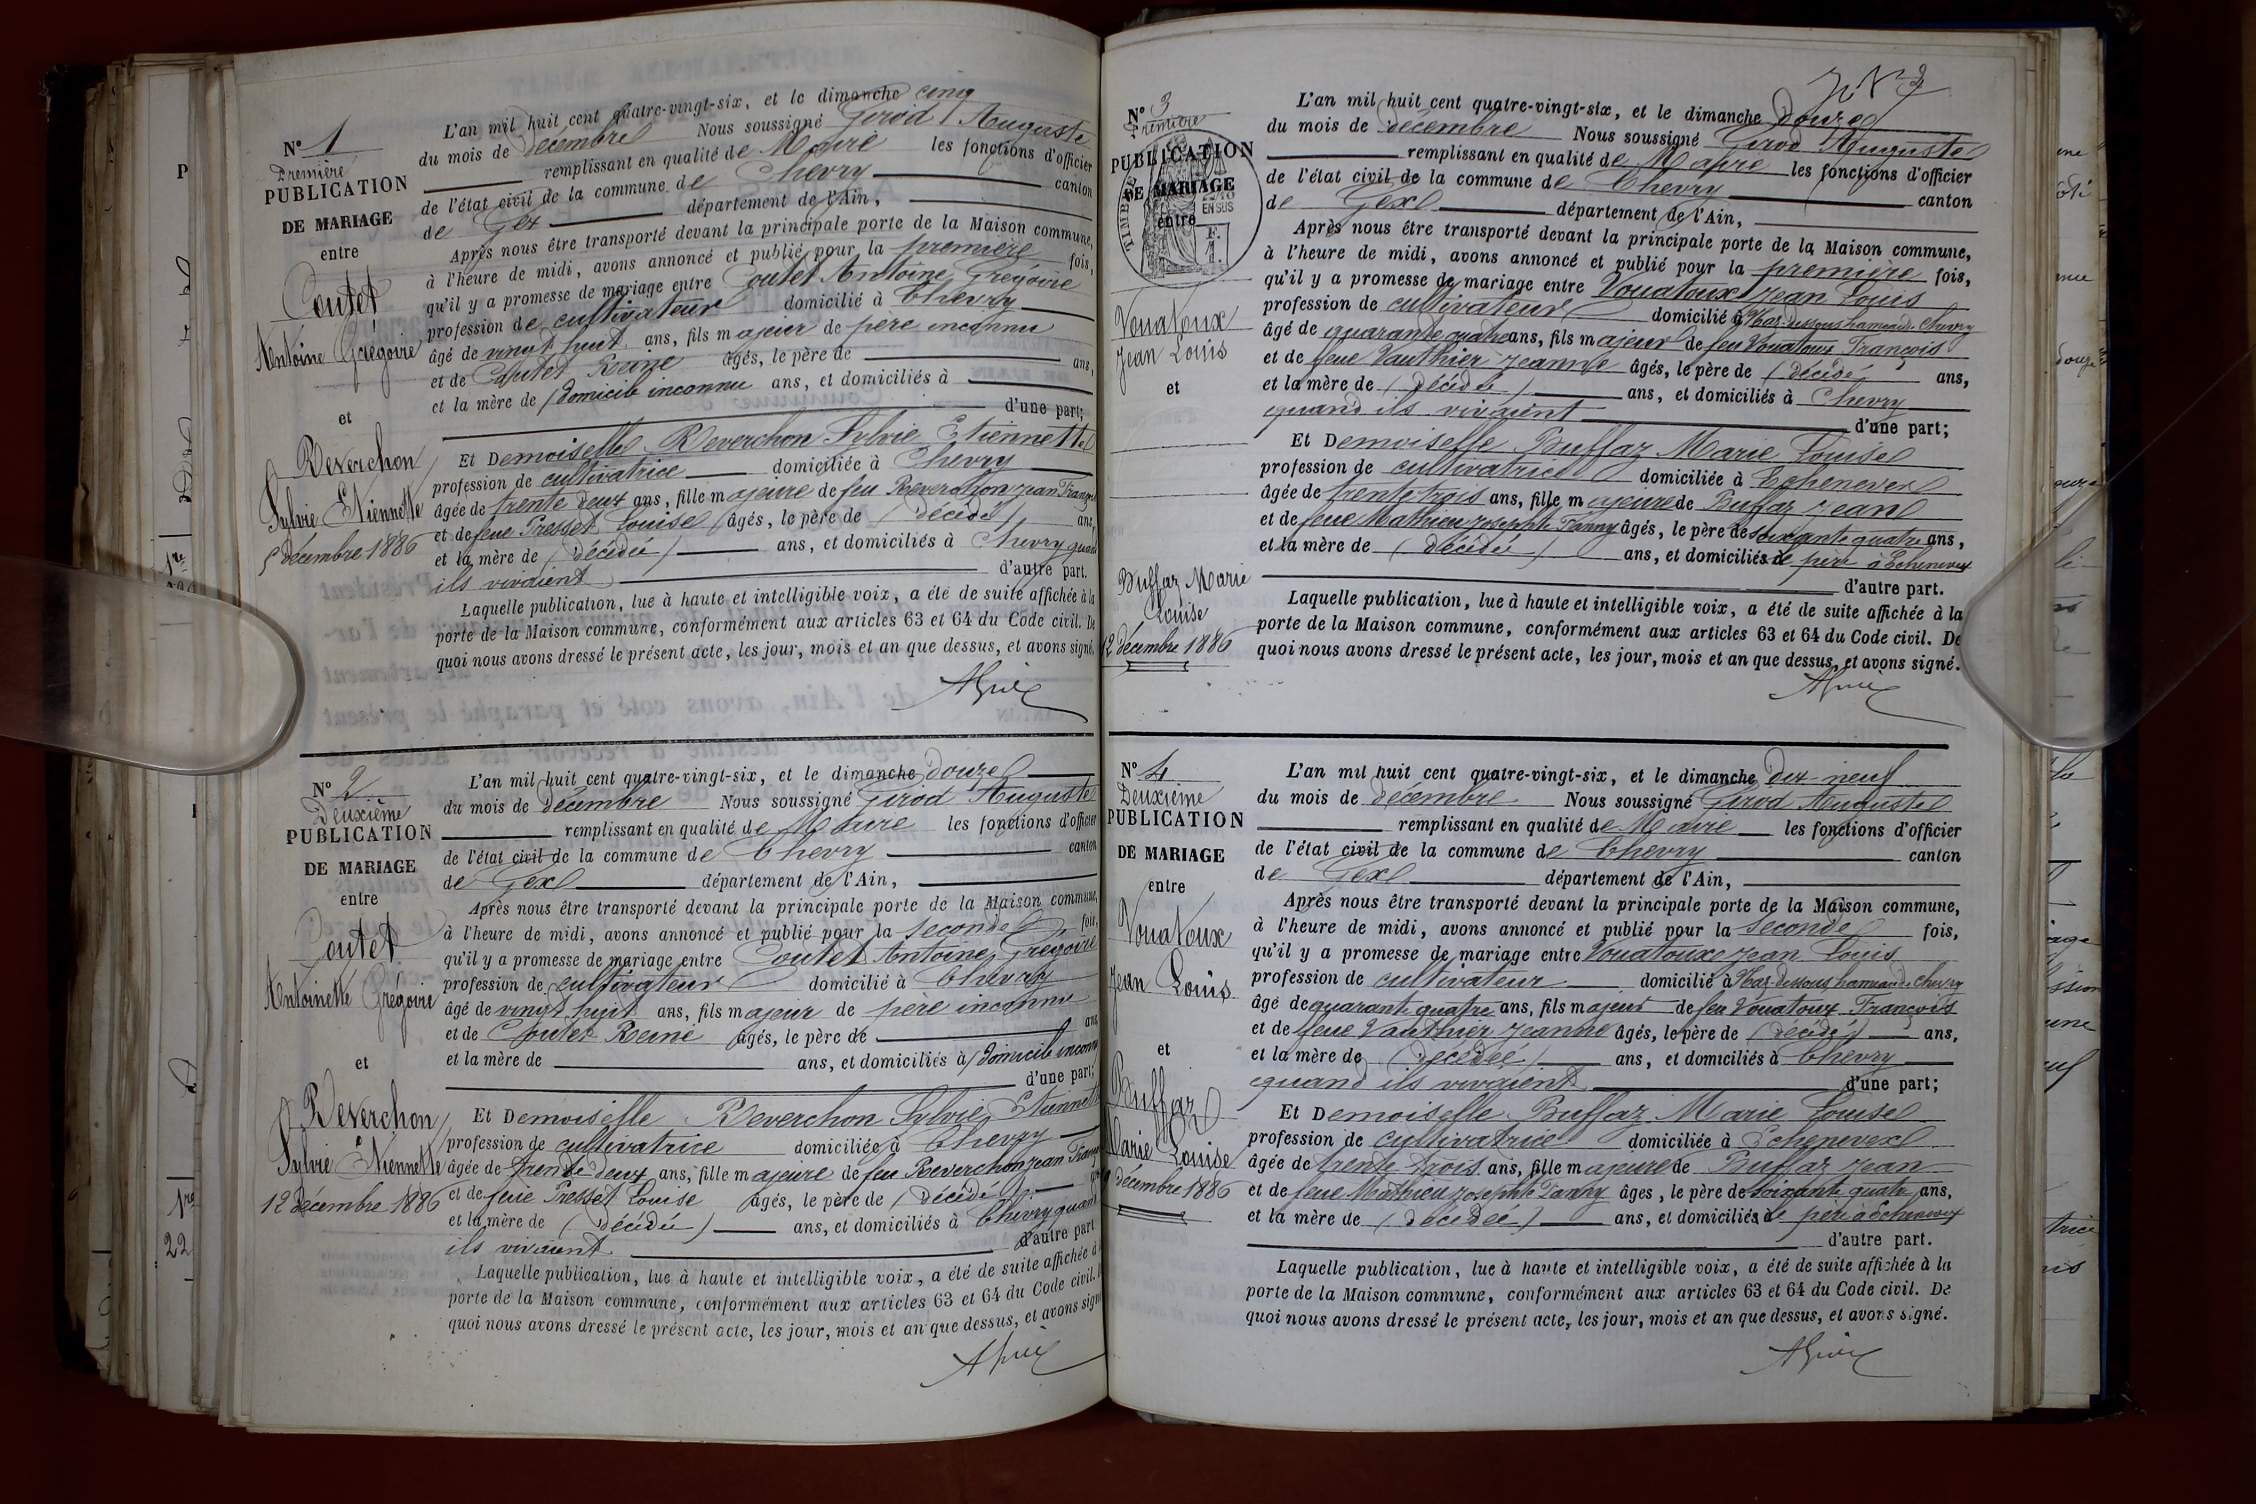 N° 1
Première
PUBLICATION
DE MARIAGE
entre
Coutet
Antoine Grégoire
et
Reverchon
Sylvie Etiennette
5 décembre 1886
L'an mil huit cent quatre-vingt-six, et le dimanche cinq
du mois de décembre Nous soussigné Girod Auguste
remplissant en qualité de Maire les fonctions d'officier
de l'état civil de la commune de Chevry canton
de Gex département de l'Ain,
Après nous être transporté devant la principale porte de la Maison commune,
à l'heure de midi, avons annoncé et publié pour la première fois,
qu'il y a promesse de mariage entre Coutet Antoine Grégoire
profession de cultivateur domicilié à Chevry
âgé de vingt huit ans, fils majeur de père inconnu
et de Coutet Reine âgés, le père de ans,
et la mère de (domicile inconnu ans, et domiciliés à
d'une part;
Et Demoiselle Reverchon Sylvie Etiennette
profession de cultivatrice domiciliée à Chevry
âgée de trente deux ans, fille majeure de feu Reverchon Jean Franç
et de feue Presset Louise âgés, le père de (décédé) ans,
et la mère de (décédée) ans, et domiciliés à Chevry quand
ils vivaient d'autre part.
Laquelle publication, lue à haute et intelligible voix, a été de suite affichée à la
porte de la Maison commune, conformément aux articles 63 et 64 du Code civil. De
quoi nous avons dressé le présent acte, les jour, mois et an que dessus, et avons signé.
N° 2
Deuxième
PUBLICATION
DE MARIAGE
entre
Coutet
Antoinette Grégoire
et
Reverchon
Sylvie Etiennette
12 décembre 1886
L'an mil huit cent quatre-vingt-six, et le dimanche douze
du mois de décembre Nous soussigné Girod Auguste
remplissant en qualité de Maire les fonctions d'officier
de l'état civil de la commune de Chevry canton
de Gex département de l'Ain,
Après nous être transporté devant la principale porte de la Maison commune,
à l'heure de midi, avons annoncé et publié pour la seconde fois,
qu'il y a promesse de mariage entre Coutet Antoine Grégoire
profession de cultivateur domicilié à Chevry
âgé de vingt huit ans, fils majeur de père inconnu
et de Coutet Reine âgés, le père de ans,
et la mère de ans, et domiciliés à (domicile inconnu
d'une part;
Et Demoiselle Reverchon Sylvie Etiennette
profession de cultivatrice domiciliée à Chevry
âgée de trente deux ans, fille majeure de feu Reverchon Jean Franç
et de feue Presset Louise âgés, le père de (décédé)
et la mère de (décédée) ans, et domiciliés à Chevry quand
ils vivaient d'autre part
Laquelle publication, lue à haute et intelligible voix, a été de suite affichée à
porte de la Maison commune, conformément aux articles 63 et 64 du Code civil.
quoi nous avons dressé le présent acte, les jour, mois et an que dessus, et avons signé
N° 3
Première
PUBLICATION
DE MARIAGE
entre
TIMBRE
EN SUS
Vouatoux
Jean Louis
et
Buffaz Marie
Louise
12 décembre 1886
L'an mil huit cent quatre-vingt-six, et le dimanche douze
du mois de décembre Nous soussigné Girod Auguste
remplissant en qualité de Maire les fonctions d'officier
de l'état civil de la commune de Chevry canton
de Gex département de l'Ain,
Après nous être transporté devant la principale porte de la Maison commune,
à l'heure de midi, avons annoncé et publié pour la première fois,
qu'il y a promesse de mariage entre Vouatoux Jean Louis
profession de cultivateur domicilié à Naz-dessous hameau de Chevry
âgé de quarante quatre ans, fils majeur de feu Vouatoux François
et de feue Vauthier Jeanne âgés, le père de (décédé) ans,
et la mère de (décédée) ans, et domiciliés à Chevry
quand ils vivaient d'une part;
Et Demoiselle Buffaz Marie Louise
profession de cultivatrice domiciliée à Echenevex
âgée de trente trois ans, fille majeure de Buffaz Jean
et de feue Mathieu Josephte Fanny âgés, le père de soixante quatre ans,
et la mère de (décédée) ans, et domiciliés le père à Echenevex
d'autre part.
Laquelle publication, lue à haute et intelligible voix, a été de suite affichée à la
porte de la Maison commune, conformément aux articles 63 et 64 du Code civil. De
quoi nous avons dressé le présent acte, les jour, mois et an que dessus, et avons signé.
N° 4
Deuxième
PUBLICATION
DE MARIAGE
entre
Vouatoux
Jean Louis
et
Buffaz
Marie Louise
décembre 1886
L'an mil huit cent quatre-vingt-six, et le dimanche dix-neuf
du mois de décembre Nous soussigné Girod Auguste
remplissant en qualité de Maire les fonctions d'officier
de l'état civil de la commune de Chevry canton
de Gex département de l'Ain,
Après nous être transporté devant la principale porte de la Maison commune,
à l'heure de midi, avons annoncé et publié pour la seconde fois,
qu'il y a promesse de mariage entre Vouatoux Jean Louis
profession de cultivateur domicilié à Naz-dessous hameau de Chevry
âgé de quarante quatre ans, fils majeur de feu Vouatoux François
et de feue Vauthier Jeanne âgés, le père de (décédé) ans,
et la mère de (décédée) ans, et domiciliés à Chevry
quand ils vivaient d'une part;
Et Demoiselle Buffaz Marie Louise
profession de cultivatrice domiciliée à Echenevex
âgée de trente trois ans, fille majeure de Buffaz Jean
et de feue Mathieu Josephte Fanny âgés, le père de soixante quatre ans,
et la mère de (décédée) ans, et domiciliés le père à Echenevex
d'autre part.
Laquelle publication, lue à haute et intelligible voix, a été de suite affichée à la
porte de la Maison commune, conformément aux articles 63 et 64 du Code civil. De
quoi nous avons dressé le présent acte, les jour, mois et an que dessus, et avons signé.